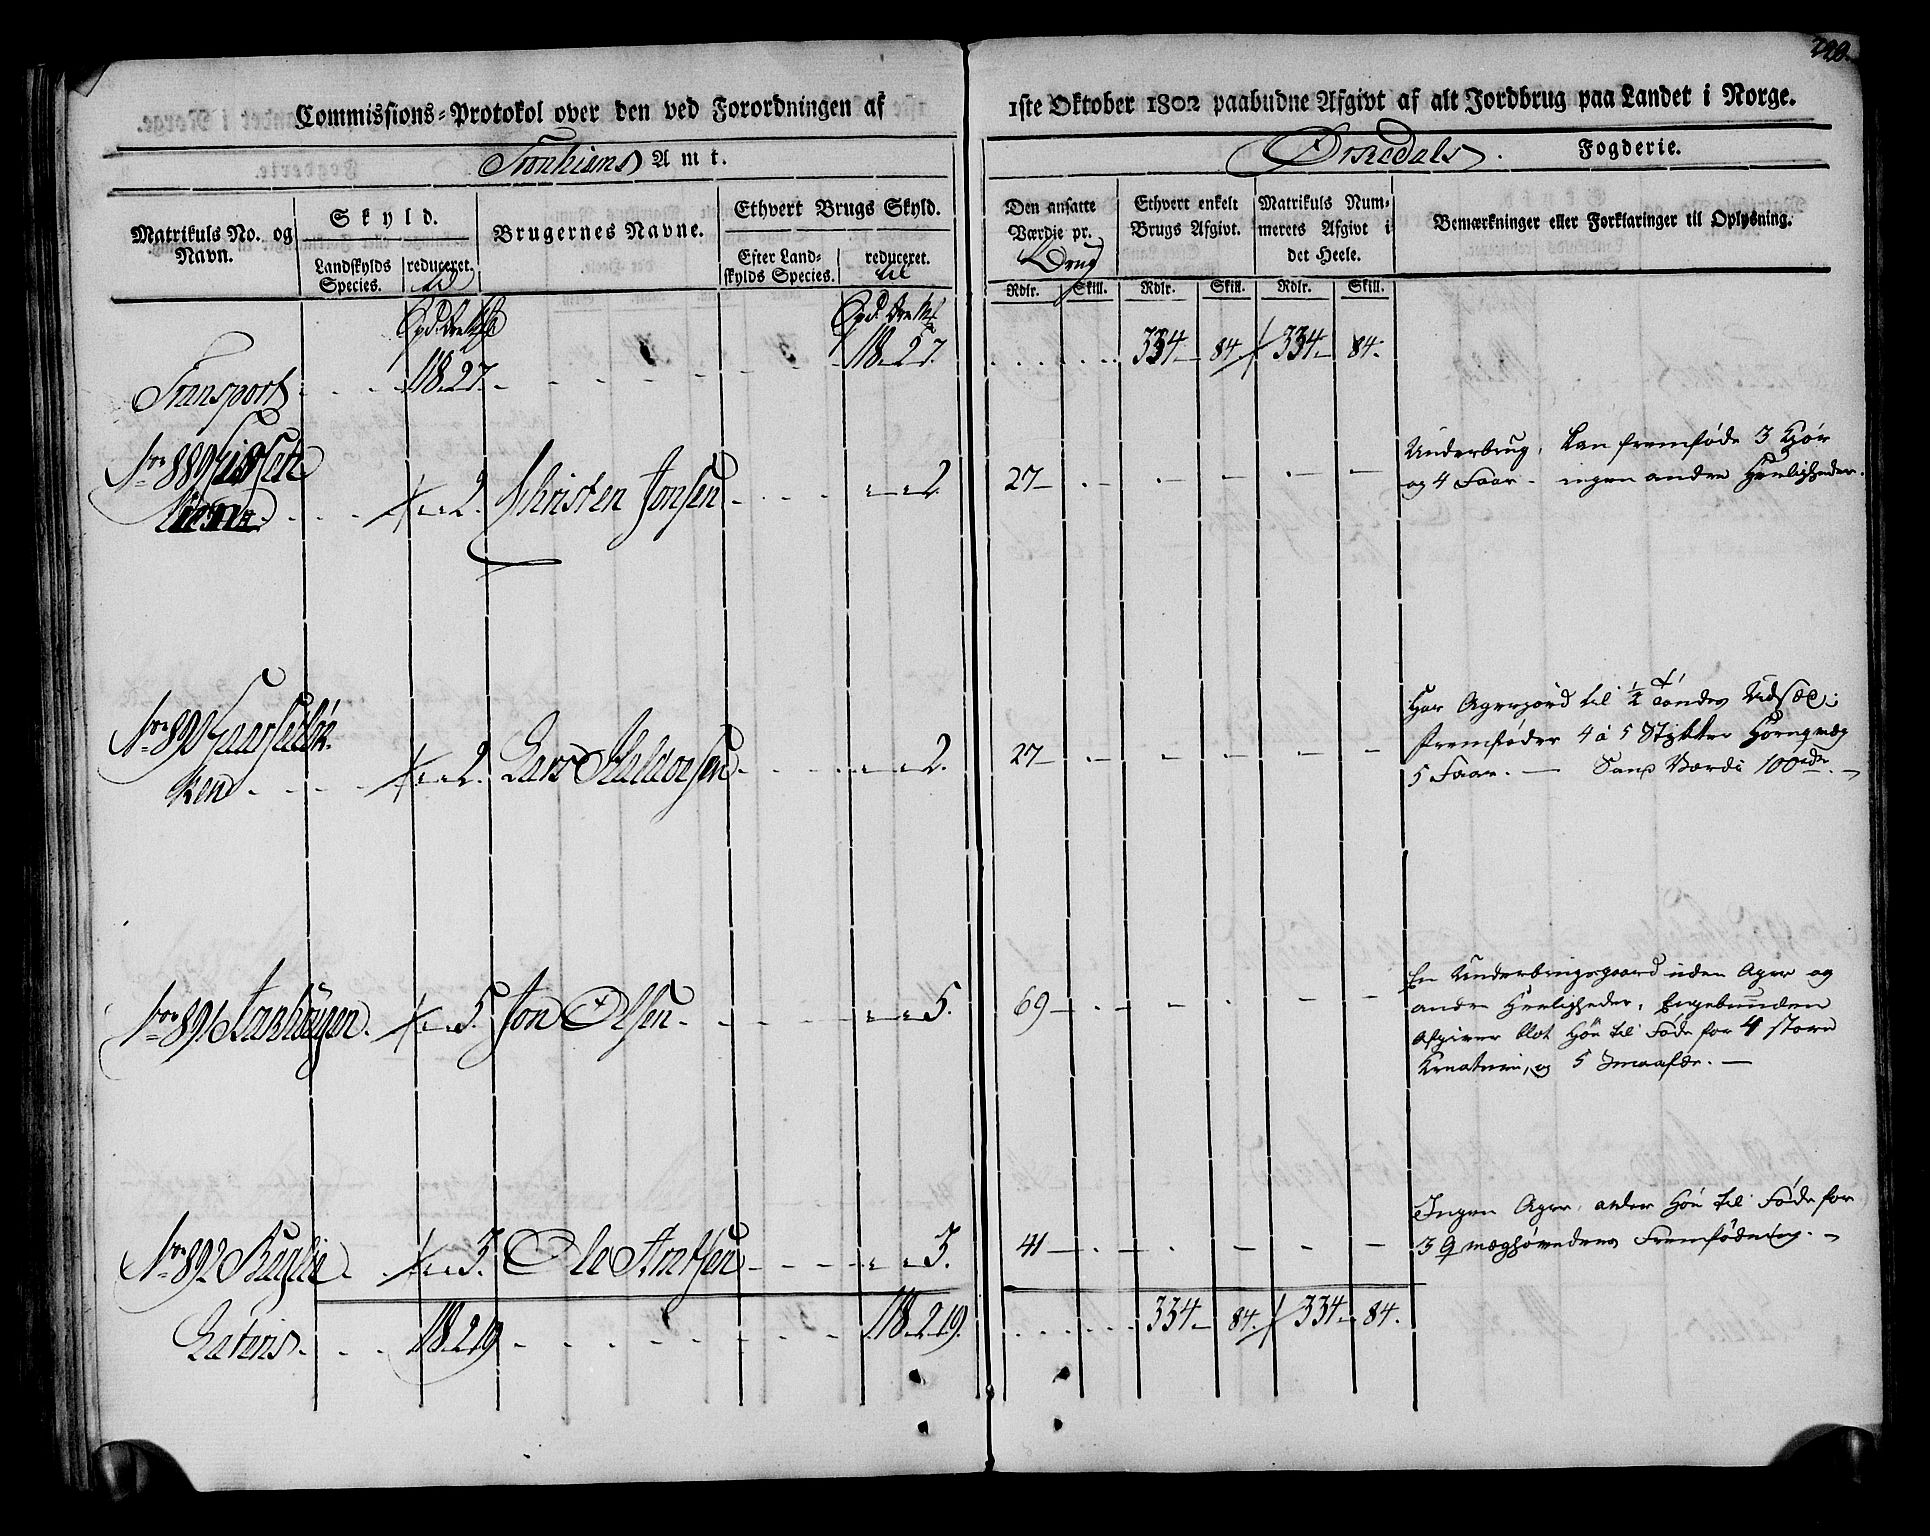 220.
Commissions-Protokol over den ved Forordningen af 1ste Oktober 1802 paabudne Afgivt af alt Jordbrug paa Landet i Norge.
Tronhiems Amt. Orkedals Fogderie.
Matrikuls No. og Navn.
Skyld.
Landskylds Species.
reduceret. til
Brugernes Navne.
Ethvert Brugs Skyld.
Efter Landskylds Species.
reduceret. til
Den ansatte Værdie pr. Brug
Ethvert enkelt Brugs Afgivt.
Matrikuls Nummerets Afgivt i det Heele.
Bemærkninger eller Forklaringer til Oplysning.
Rdlr. Skill. Rdlr. Skill. Rdlr. Skill.
Transport 118. 2 7. 118. 2 7. 334 84 334 84.
No 889 2. Christen Jonsen 2. 27
Underbrug, kan fremføde 3 Kiør
og 4 Faar. ingen andre Herligheder.
No 890
ken 2. Lars Haldorsen 2. 27
Har Agerjord til ½ Tønde Udsæd;
fremføder 4 á 5 Stykker Hornqvæg
5 Faar. Sand Værdi 100 rdr.
No 891 5. Jon Olsen 5. 69
En Underbrugsgaard uden Ager og
andre Herligheder, Engebunden
Afgiver blot Høe til Føde for 4 store
Kreaturer, og 5 Smaafæe.
No 892 Baglie 3. Ole Arntsen 3. 41
Ingen Ager, arder Høe til Føde for
3 Qvæghøveders Fremfødning.
Lateris 118. 2. 19. 118. 2. 19. 334 84. 334 84.